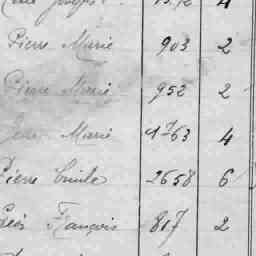 Joseph 1372 4
Pierre Marie 903 2
Pierre Marie 952 2
Jean Marie 1763 4
Pierre Emile 2658 6
François 817 2